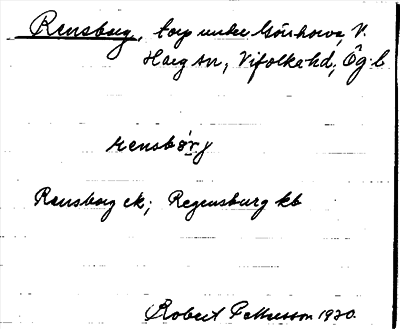 Rensborg, torp under Göishorva, V.
Harg sn, Vifolka hd, Ög. l.
rensbórj
Rensborg ek; Regensburg kb
Robert Pettersson 1920.